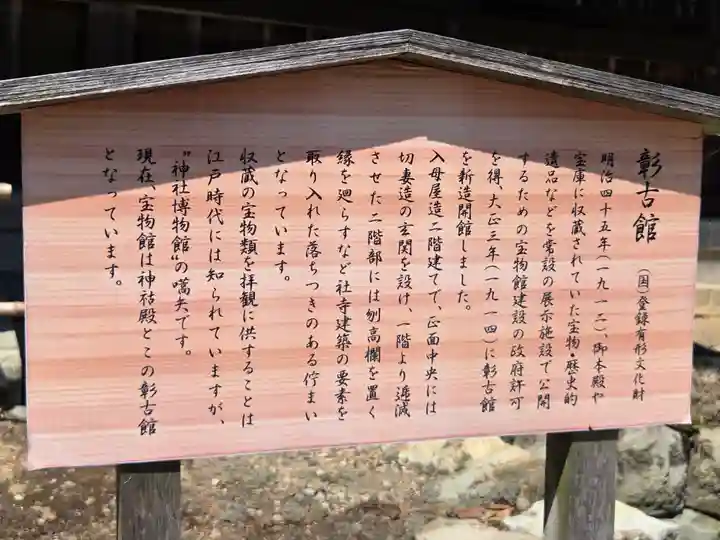 彰古館 (国)登録有形文化財
明治四十五年(一九一二)、御本殿や
宝庫に収蔵されていた宝物・歴史的
遺品などを常設の展示施設で公開
するための宝物館建設の政府許可
を得、大正三年(一九一四)に彰古館
を新造開館しました。
入母屋造二階建てで、正面中央には
切妻造の玄関を設け、一階より逓減
させた二階部には刎高欄を置く
縁を廻らすなど社寺建築の要素を
取り入れた落ちつきのある佇まい
となっています。
収蔵の宝物類を拝観に供することは
江戸時代には知られていますが、
"神社博物館"の嚆矢です。
現在、宝物館は神祜殿とこの彰古館
となっています。